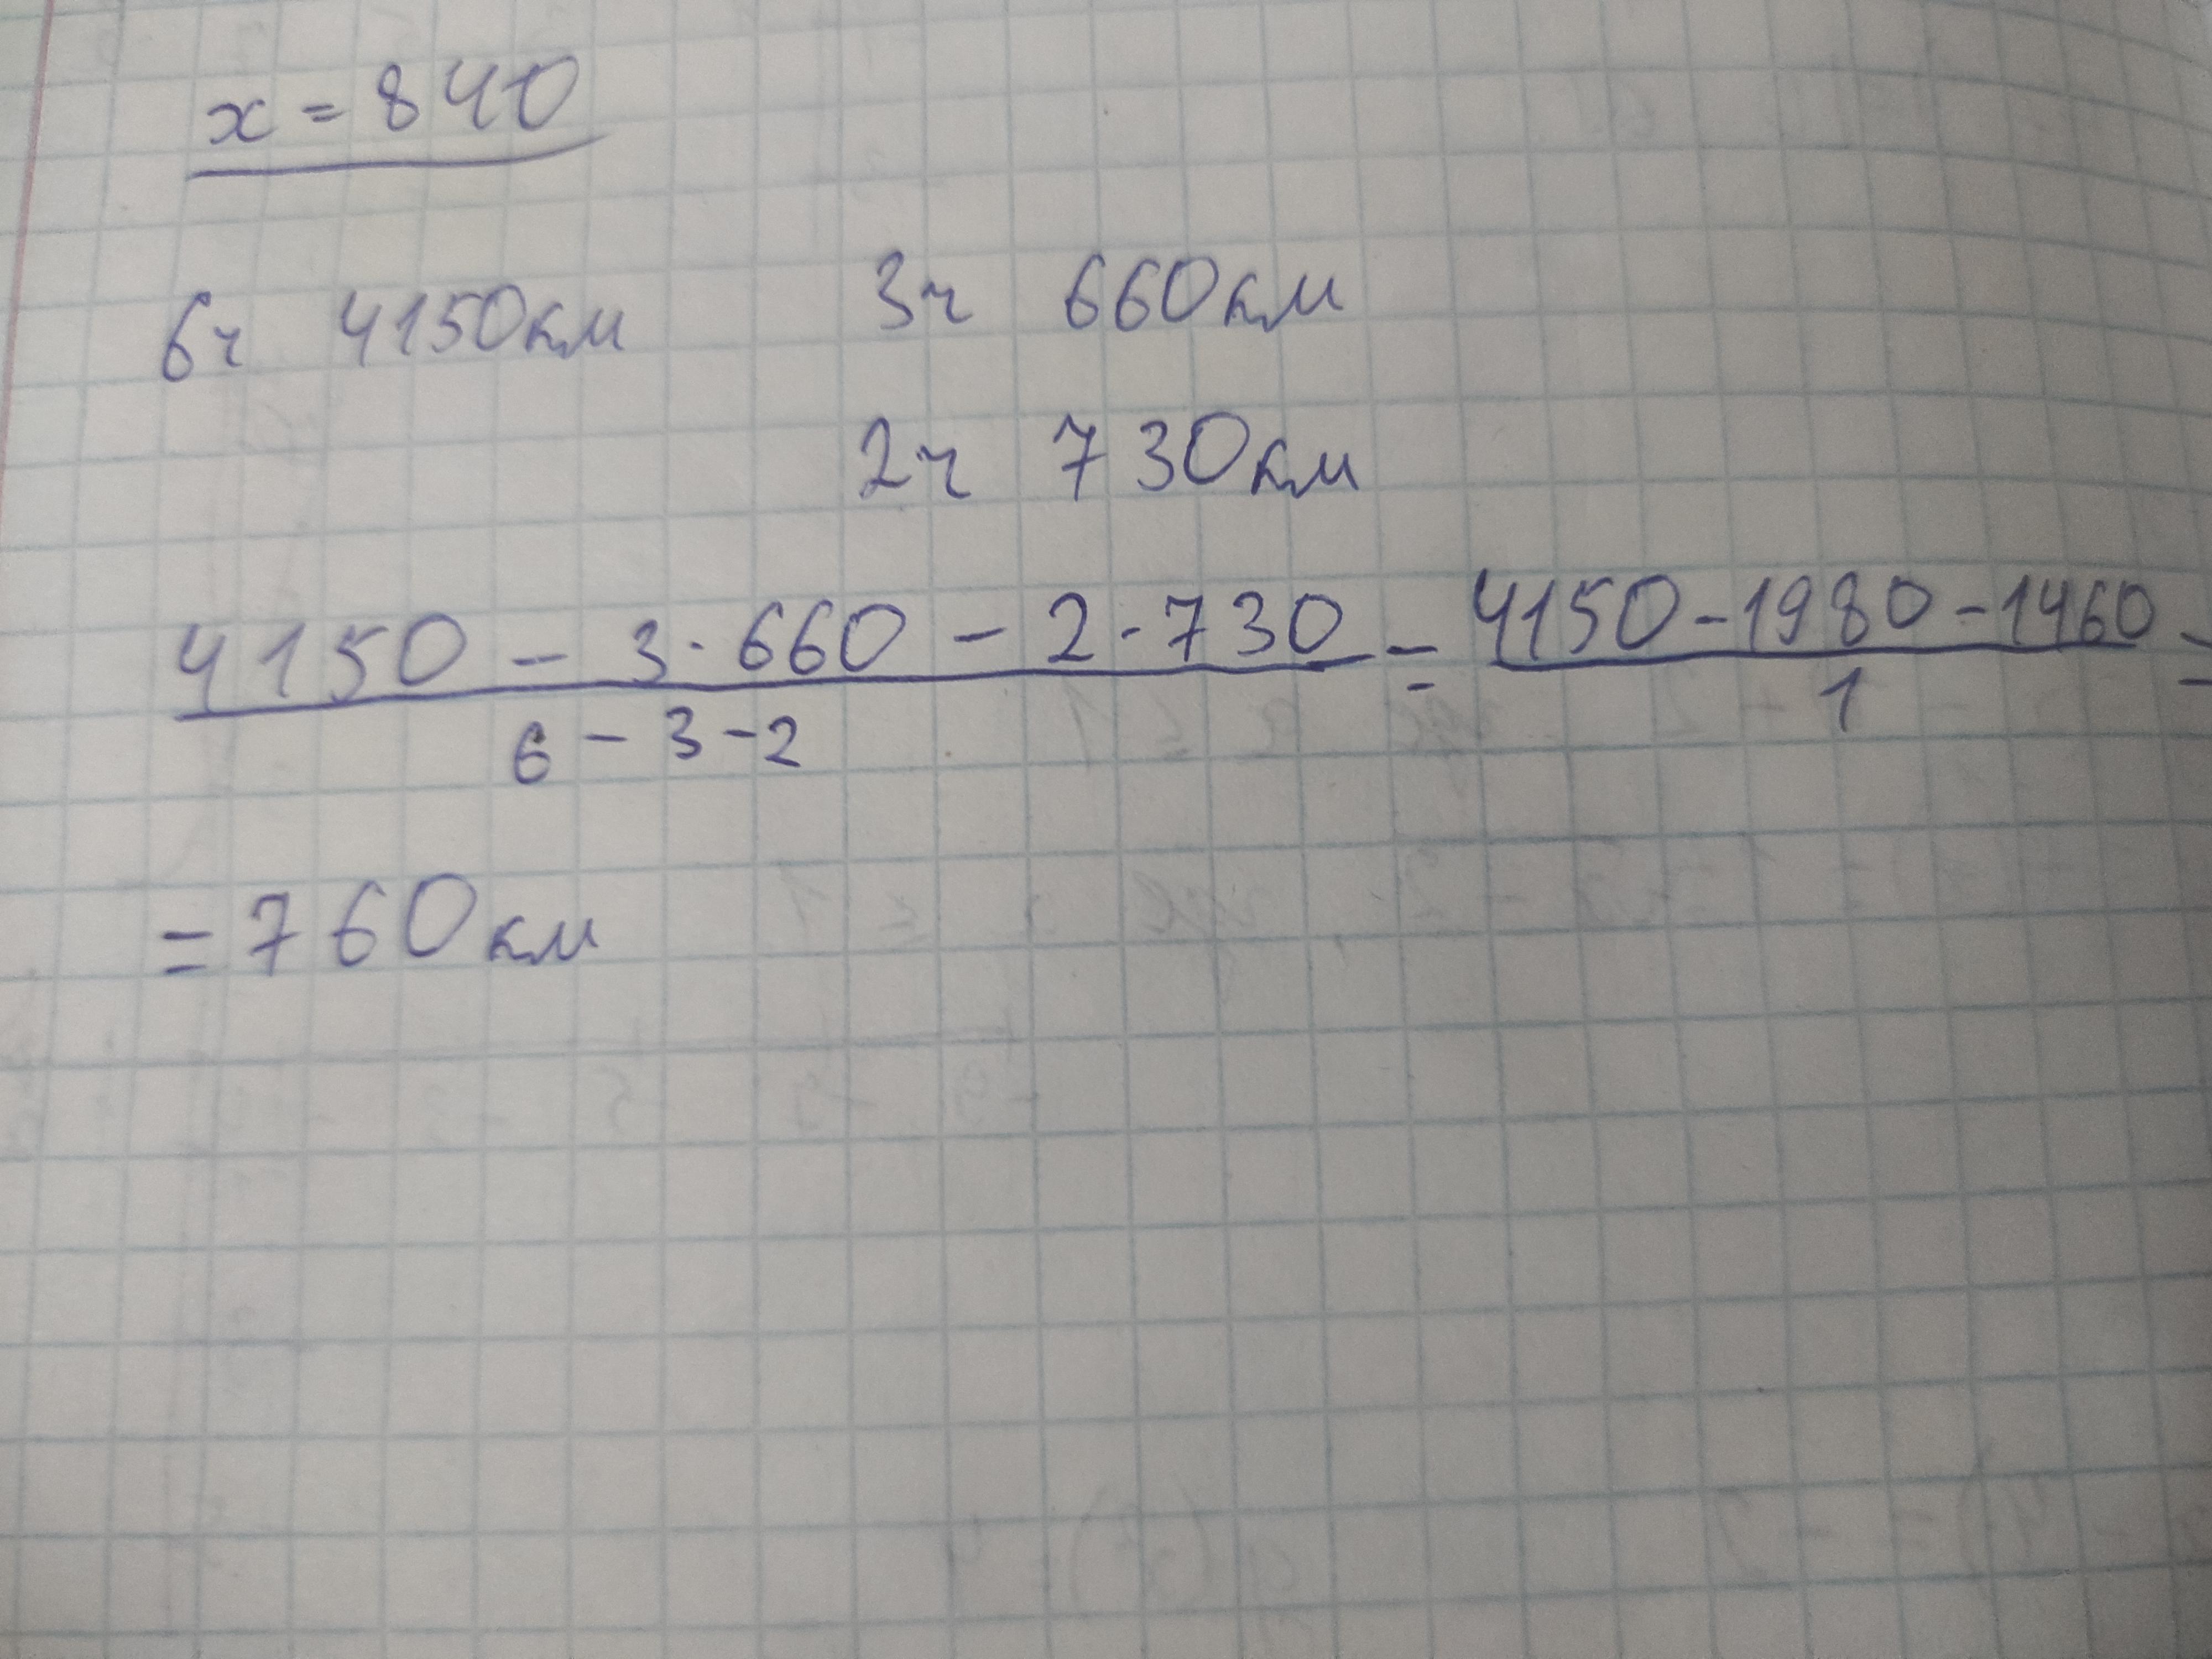 x = 840
6ч 4150км 3ч 660км
2ч 730км
4150 - 3·660 - 2·730 = 4150-1980-1460 =
6 - 3 - 2 1
= 760 км